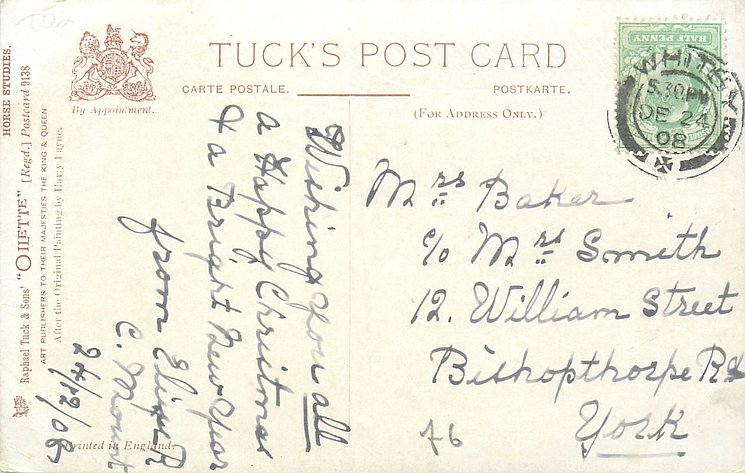 TUCK'S POST CARD
CARTE POSTALE.
POSTKARTE.
(FOR ADDRESS ONLY.)
By Appointment.
HORSE STUDIES.
Raphael Tuck & Sons' "OILETTE" [Regd.] Postcard 9138
ART PUBLISHERS TO THEIR MAJESTIES THE KING & QUEEN
After the Original Painting by Harry Payne.
Printed in England.
HALF PENNY
WHITBY
5.30PM
DE 24
08
Wishing you all
a Happy Christmas
& a Bright New Year
from
C. Mount
24/12/08
Mrs Baker
c/o Mrs Smith
12. William Street
Bishopthorpe Rd
York
76